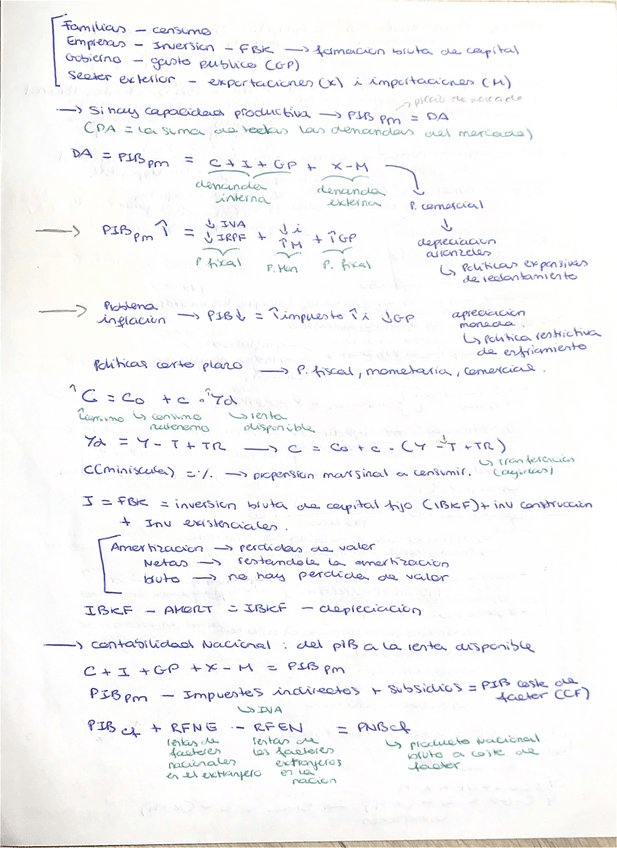 Familias - consumo
Empresas - Inversion - FBK → formacion bruta de capital
Gobierno - gasto publico (GP)
Sector exterior - exportaciones (X) i importaciones (M)
→ Si hay capacidad productiva → PIB pm = DA
precio de mercado
(DA = la suma de todas las demandas del mercado)
DA = PIB pm = C + I + GP + X - M
demanda interna
demanda externa
P. comercial
→ PIB pm ↑ = ↓ IVA ↓ IRPF + ↓ i ↑ M + ↑ GP
P. fiscal P. Mon P. fiscal
depreciacion
aranceles
↳ Politicas expansivas
→ Problema inflacion → PIB ↓ = ↑ impuesto ↑ i ↓ GP
apreciacion
moneda.
↳ politica restrictiva
de enfriamiento
Politicas corto plazo → P. fiscal, monetaria, comercial.
↑ C = Co + c · ↑ Yd
consumo ↳ consumo autonomo ↳ renta disponible
Yd = Y - T + TR → C = Co + c · (Y - ↓ T + TR)
↳ transferencias
C (miniscula) = % → propension marginal a consumir.
I = FBK = inversion bruta de capital fijo (IBKF) + inv construccion
+ Inv existenciales.
Amortizacion → perdidas de valor
Netas → restandole la amortizacion
bruto → no hay perdida de valor
IBKF - AMORT = IBKF - depreciación
→ Contabilidad Nacional : del PIB a la renta disponible
C + I + GP + X - M = PIB pm
PIB pm - Impuestos indirectos + subsidios = PIB coste de factor (CF)
↳ IVA
PIB cf + RFNE - RFEN = PNB cf
rentas de factores nacionales en el extranjero
rentas de los factores extranjeros en la nacion
↳ producto Nacional bruto a coste de factor